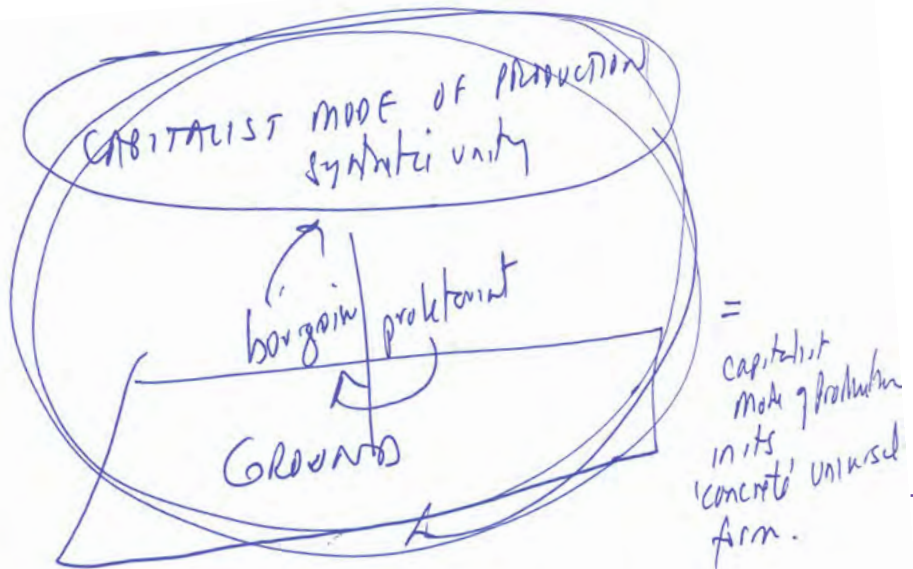 CAPITALIST MODE OF PRODUCTION
synthetic unity
bourgeois proletariat
GROUNDS
=
capitalist
Mode of Production
in its
'concrete' universal
form.